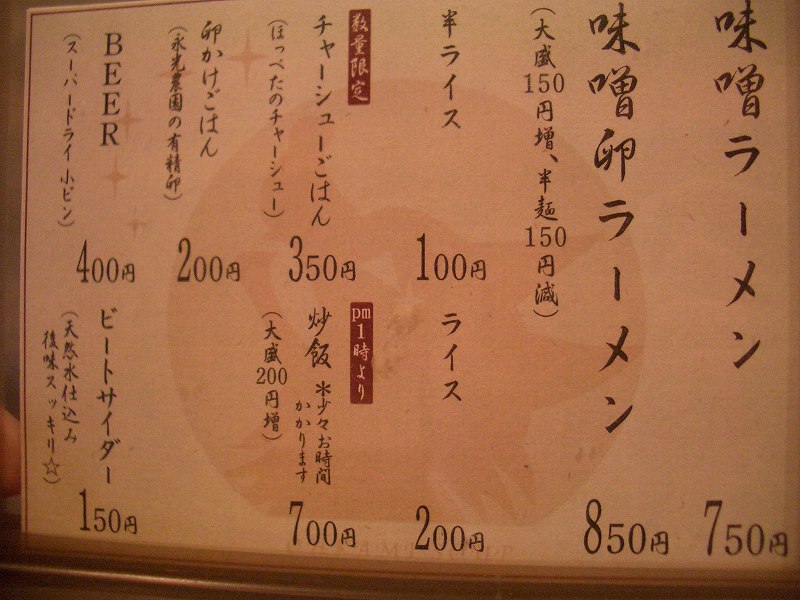 味噌ラーメン
750円
味噌卵ラーメン
850円
(大盛150円増、半麺150円減)
半ライス
100円
ライス
200円
数量限定
チャーシューごはん
(ほっぺたのチャーシュー)
350円
pm1時より
炒飯
＊少々お時間
かかります
(大盛200円増)
700円
卵かけごはん
(永光農園の有精卵)
200円
BEER
(スーパードライ小ビン)
400円
ビートサイダー
(天然水仕込み
後味スッキリ☆)
150円